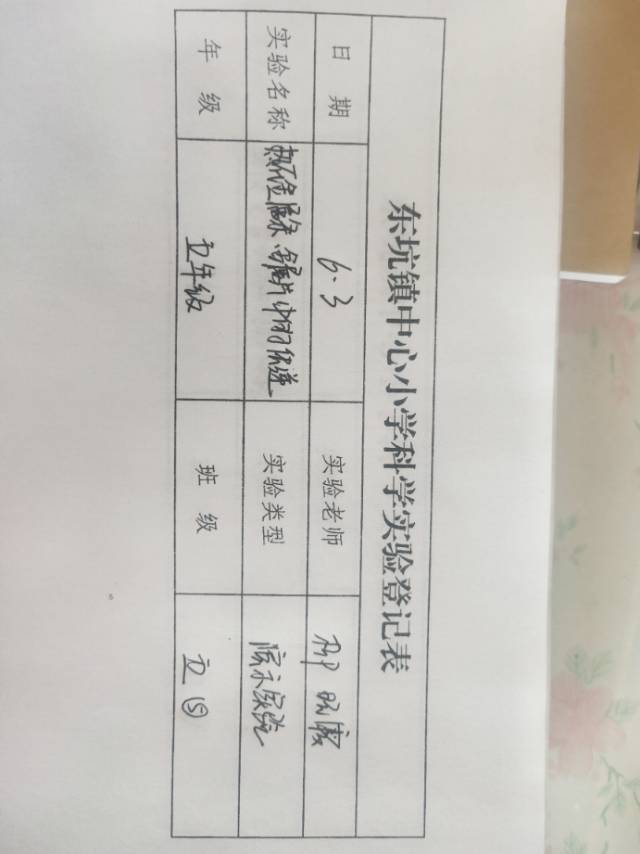 东坑镇中心小学科学实验登记表
日 期 6.3 实验老师
实验名称 热在金属条、金属片中的传递 实验类型 演示实验
年 级 五年级 班 级 五